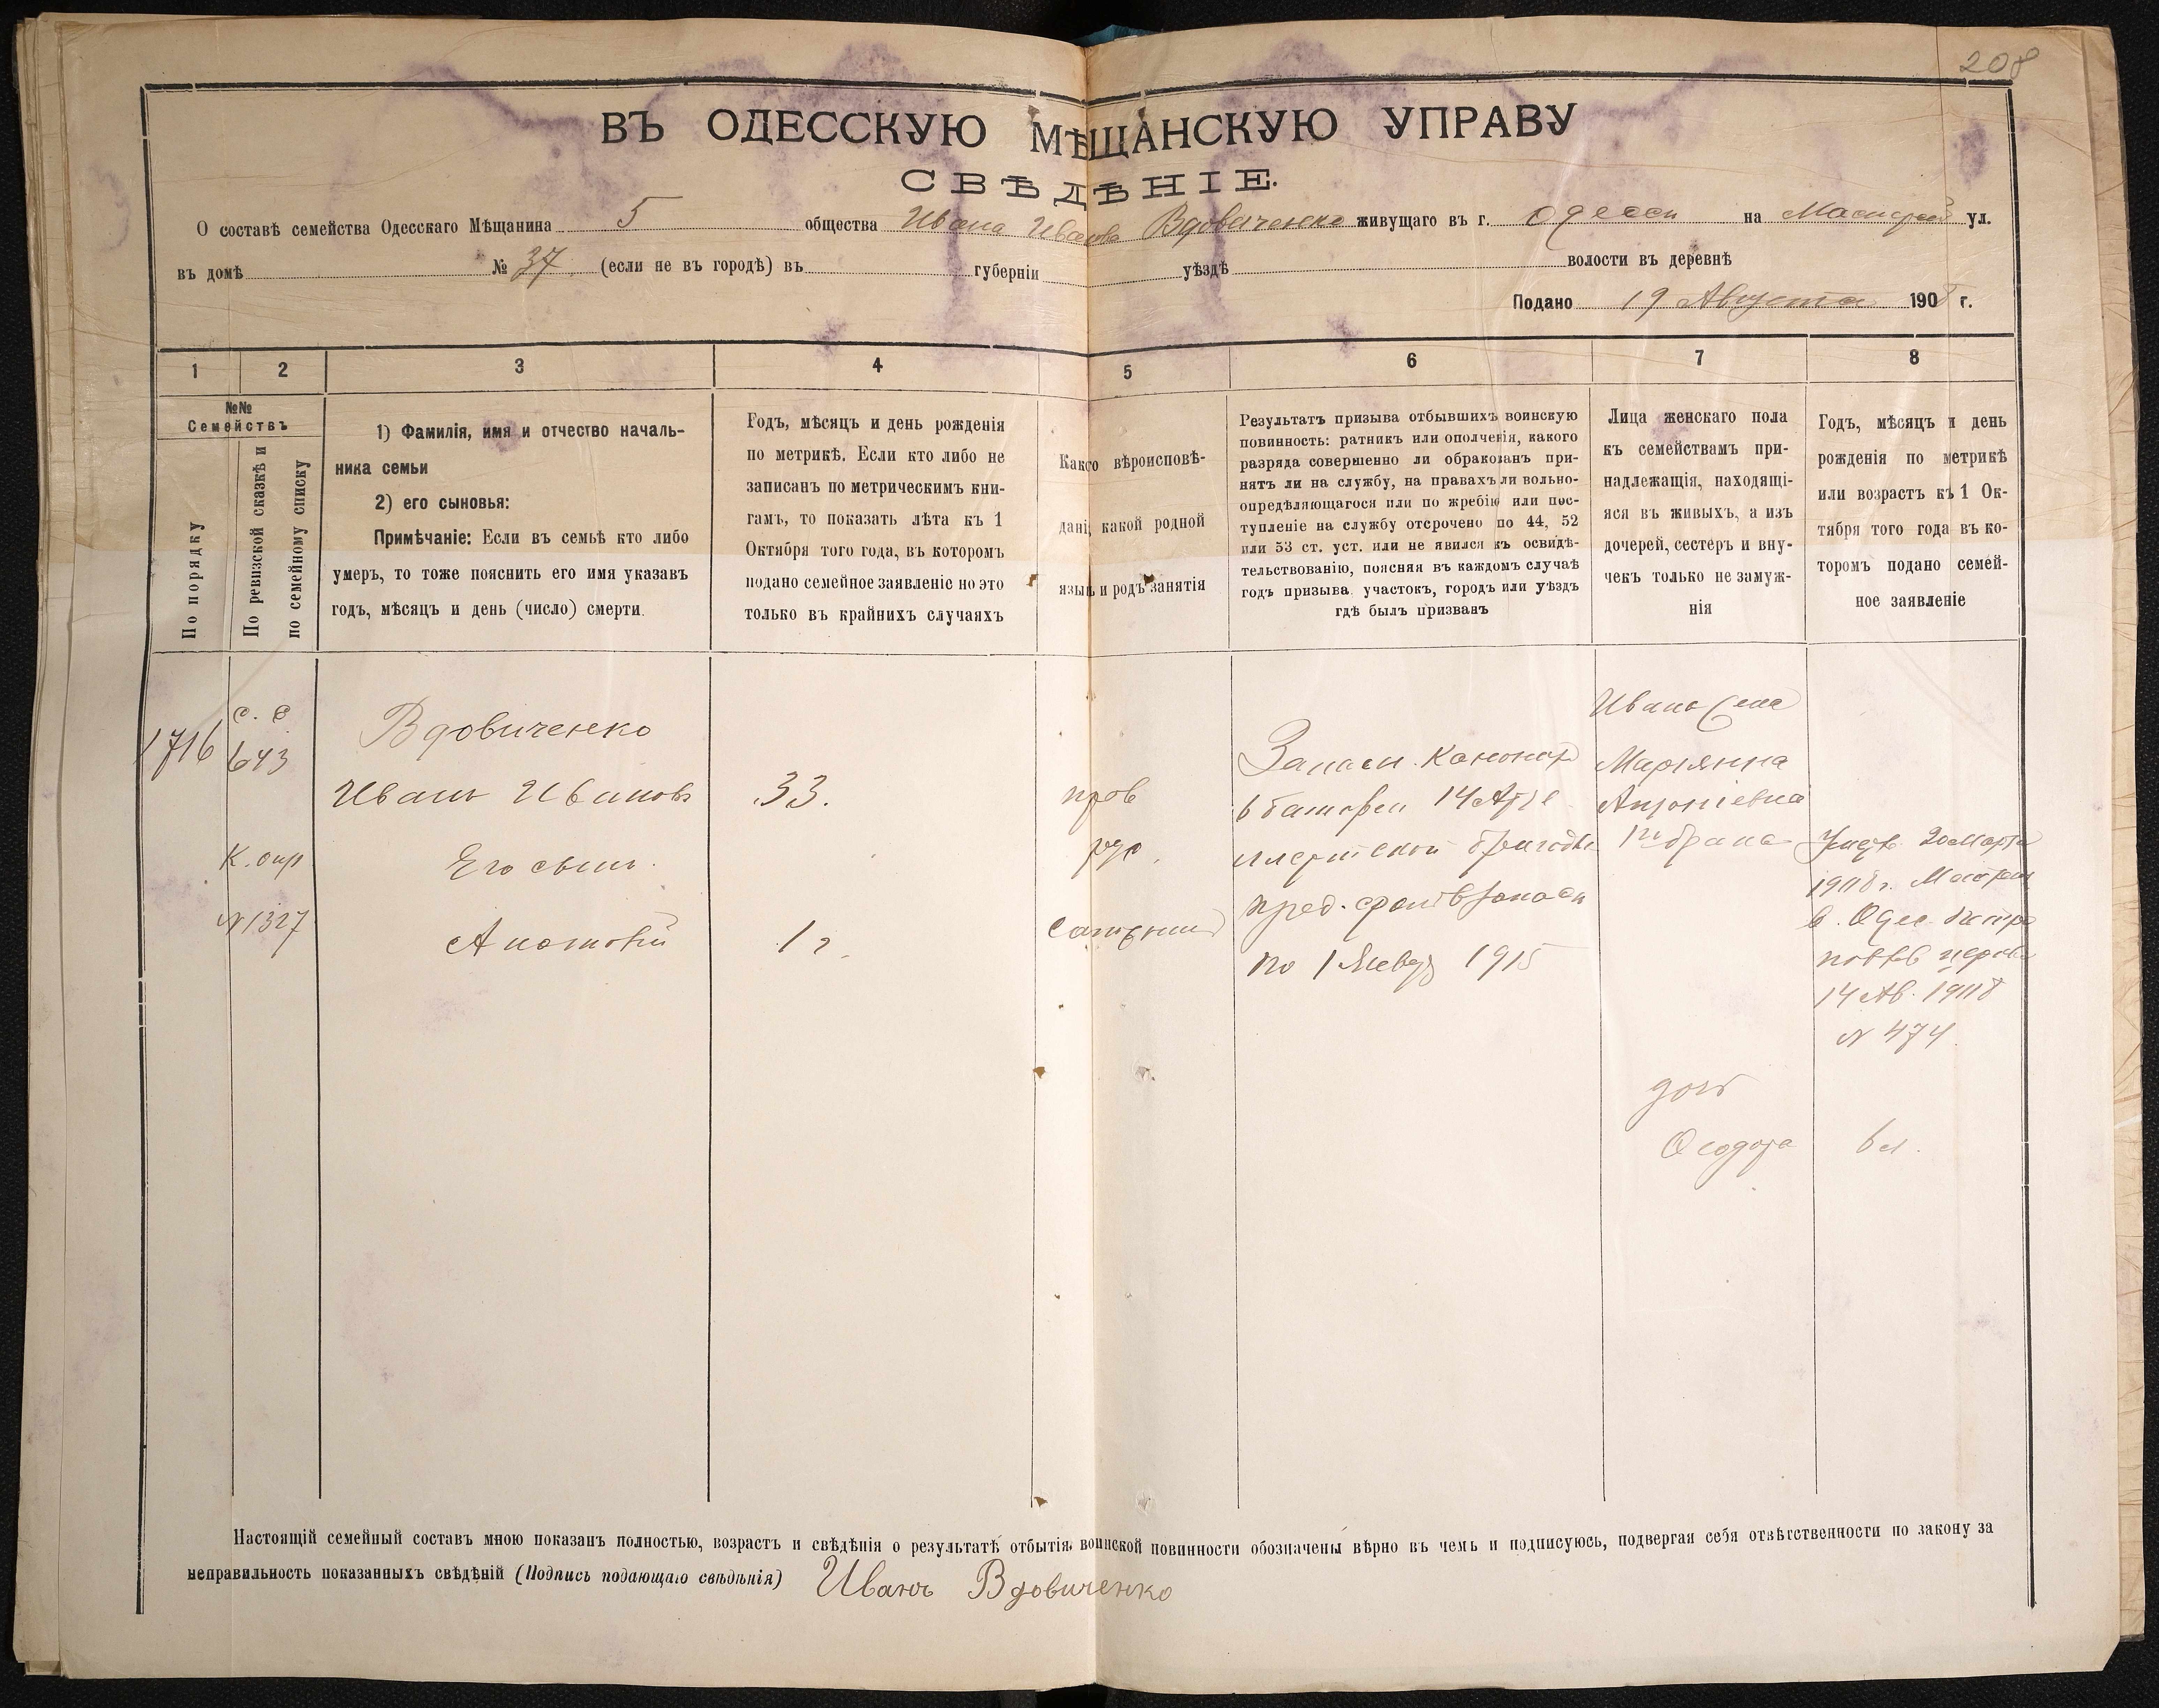 208
ВЪ ОДЕССКУЮ МѢЩАНСКУЮ УПРАВУ
СВѢДѢНІЕ.
О составѣ семейства Одесскаго Мѣщанина 5 общества Ивана Иванова Вдовиченко живущаго въ г. Одесси на ул.
въ домѣ № 37 (если не въ городѣ) въ губерніи уѣздѣ волости въ деревнѣ
Подано 19 Августа 1908 г.
1 2 3 4 5 6 7 8
№№
Семействъ
По порядку
По ревизской сказкѣ и
по семейному списку
1) Фамилія, имя и отчество началь-
ника семьи
2) его сыновья:
Примѣчаніе: Если въ семьѣ кто либо
умеръ, то тоже пояснить его имя указавъ
годъ, мѣсяцъ и день (число) смерти.
Годъ, мѣсяцъ и день рожденія
по метрикѣ. Если кто либо не
записанъ по метрическимъ кни-
гамъ, то показать лѣта къ 1
Октября того года, въ которомъ
подано семейное заявленіе но это
только въ крайнихъ случаяхъ
Какого вѣроисповѣ-
данія, какой родной
языкъ и родъ занятія
Результатъ призыва отбывшихъ воинскую
повинность: ратникъ или ополченія, какого
разряда совершенно ли обракованъ при-
нятъ ли на службу, на правахъ ли вольно-
опредѣляющагося или по жребію или пос-
тупленіе на службу отсрочено по 44, 52
или 53 ст. уст. или не явился къ освидѣ-
тельствованію, поясняя въ каждомъ случаѣ
годъ призыва участокъ, городъ или уѣздъ
гдѣ былъ призванъ
Лица женскаго пола
къ семействамъ при-
надлежащія, находящі-
яся въ живыхъ, а изъ
дочерей, сестеръ и вну-
чекъ только не замуж-
нія
Годъ, мѣсяцъ и день
рожденія по метрикѣ
или возрастъ къ 1 Ок-
тября того года въ ко-
торомъ подано семей-
ное заявленіе
1716
с. с
643
К. опр
№ 1327
Вдовиченко
Иванъ Ивановъ
Его сынъ.
33.
1 г.
прав
рус.
Запасн. Канонир
6 батареи 14 Арт
бригады
по 1 Январ 1915
Ивана жена
Марианна
Антониевна
1го брака
20 Марта
1908 г.
в. Одес.
14 Ав. 1908
№ 474.
дочь
Феодора
6 л.
Настоящій семейный составъ мною показанъ полностью, возрастъ и свѣдѣнія о результатѣ отбытія воинской повинности обозначены вѣрно въ чемъ и подписуюсь, подвергая себя отвѣтственности по закону за
неправильность показанныхъ свѣдѣній (Подпись подающаго свѣдѣнія) Иванъ Вдовиченко